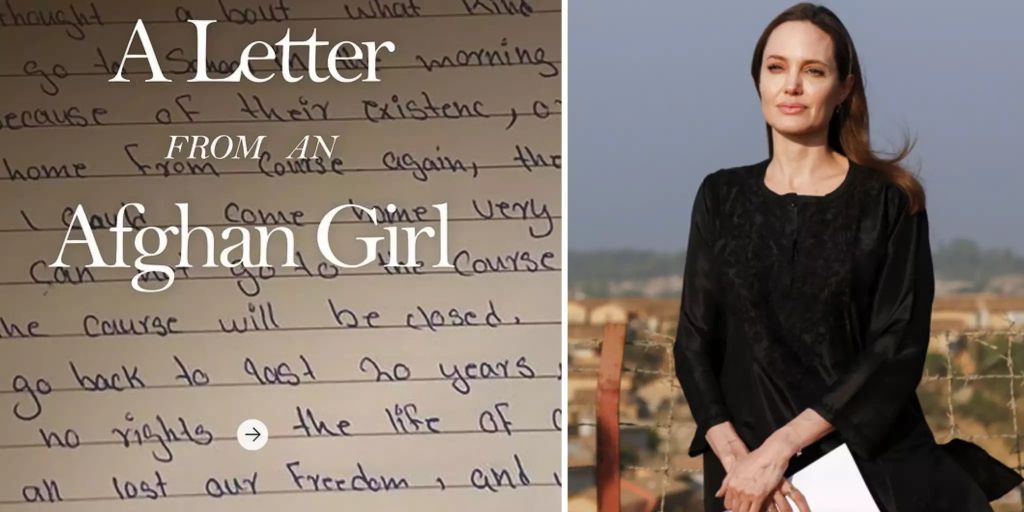 A Letter
FROM AN
Afghan Girl
thought a bout what kind
go to School in the morning
ecause of their existenc,
home from Course again, the
I could come home very
can not go to the Course
he caurse will be closed.
go back to last 20 years
no rights the life of
all lost our Freedom, and